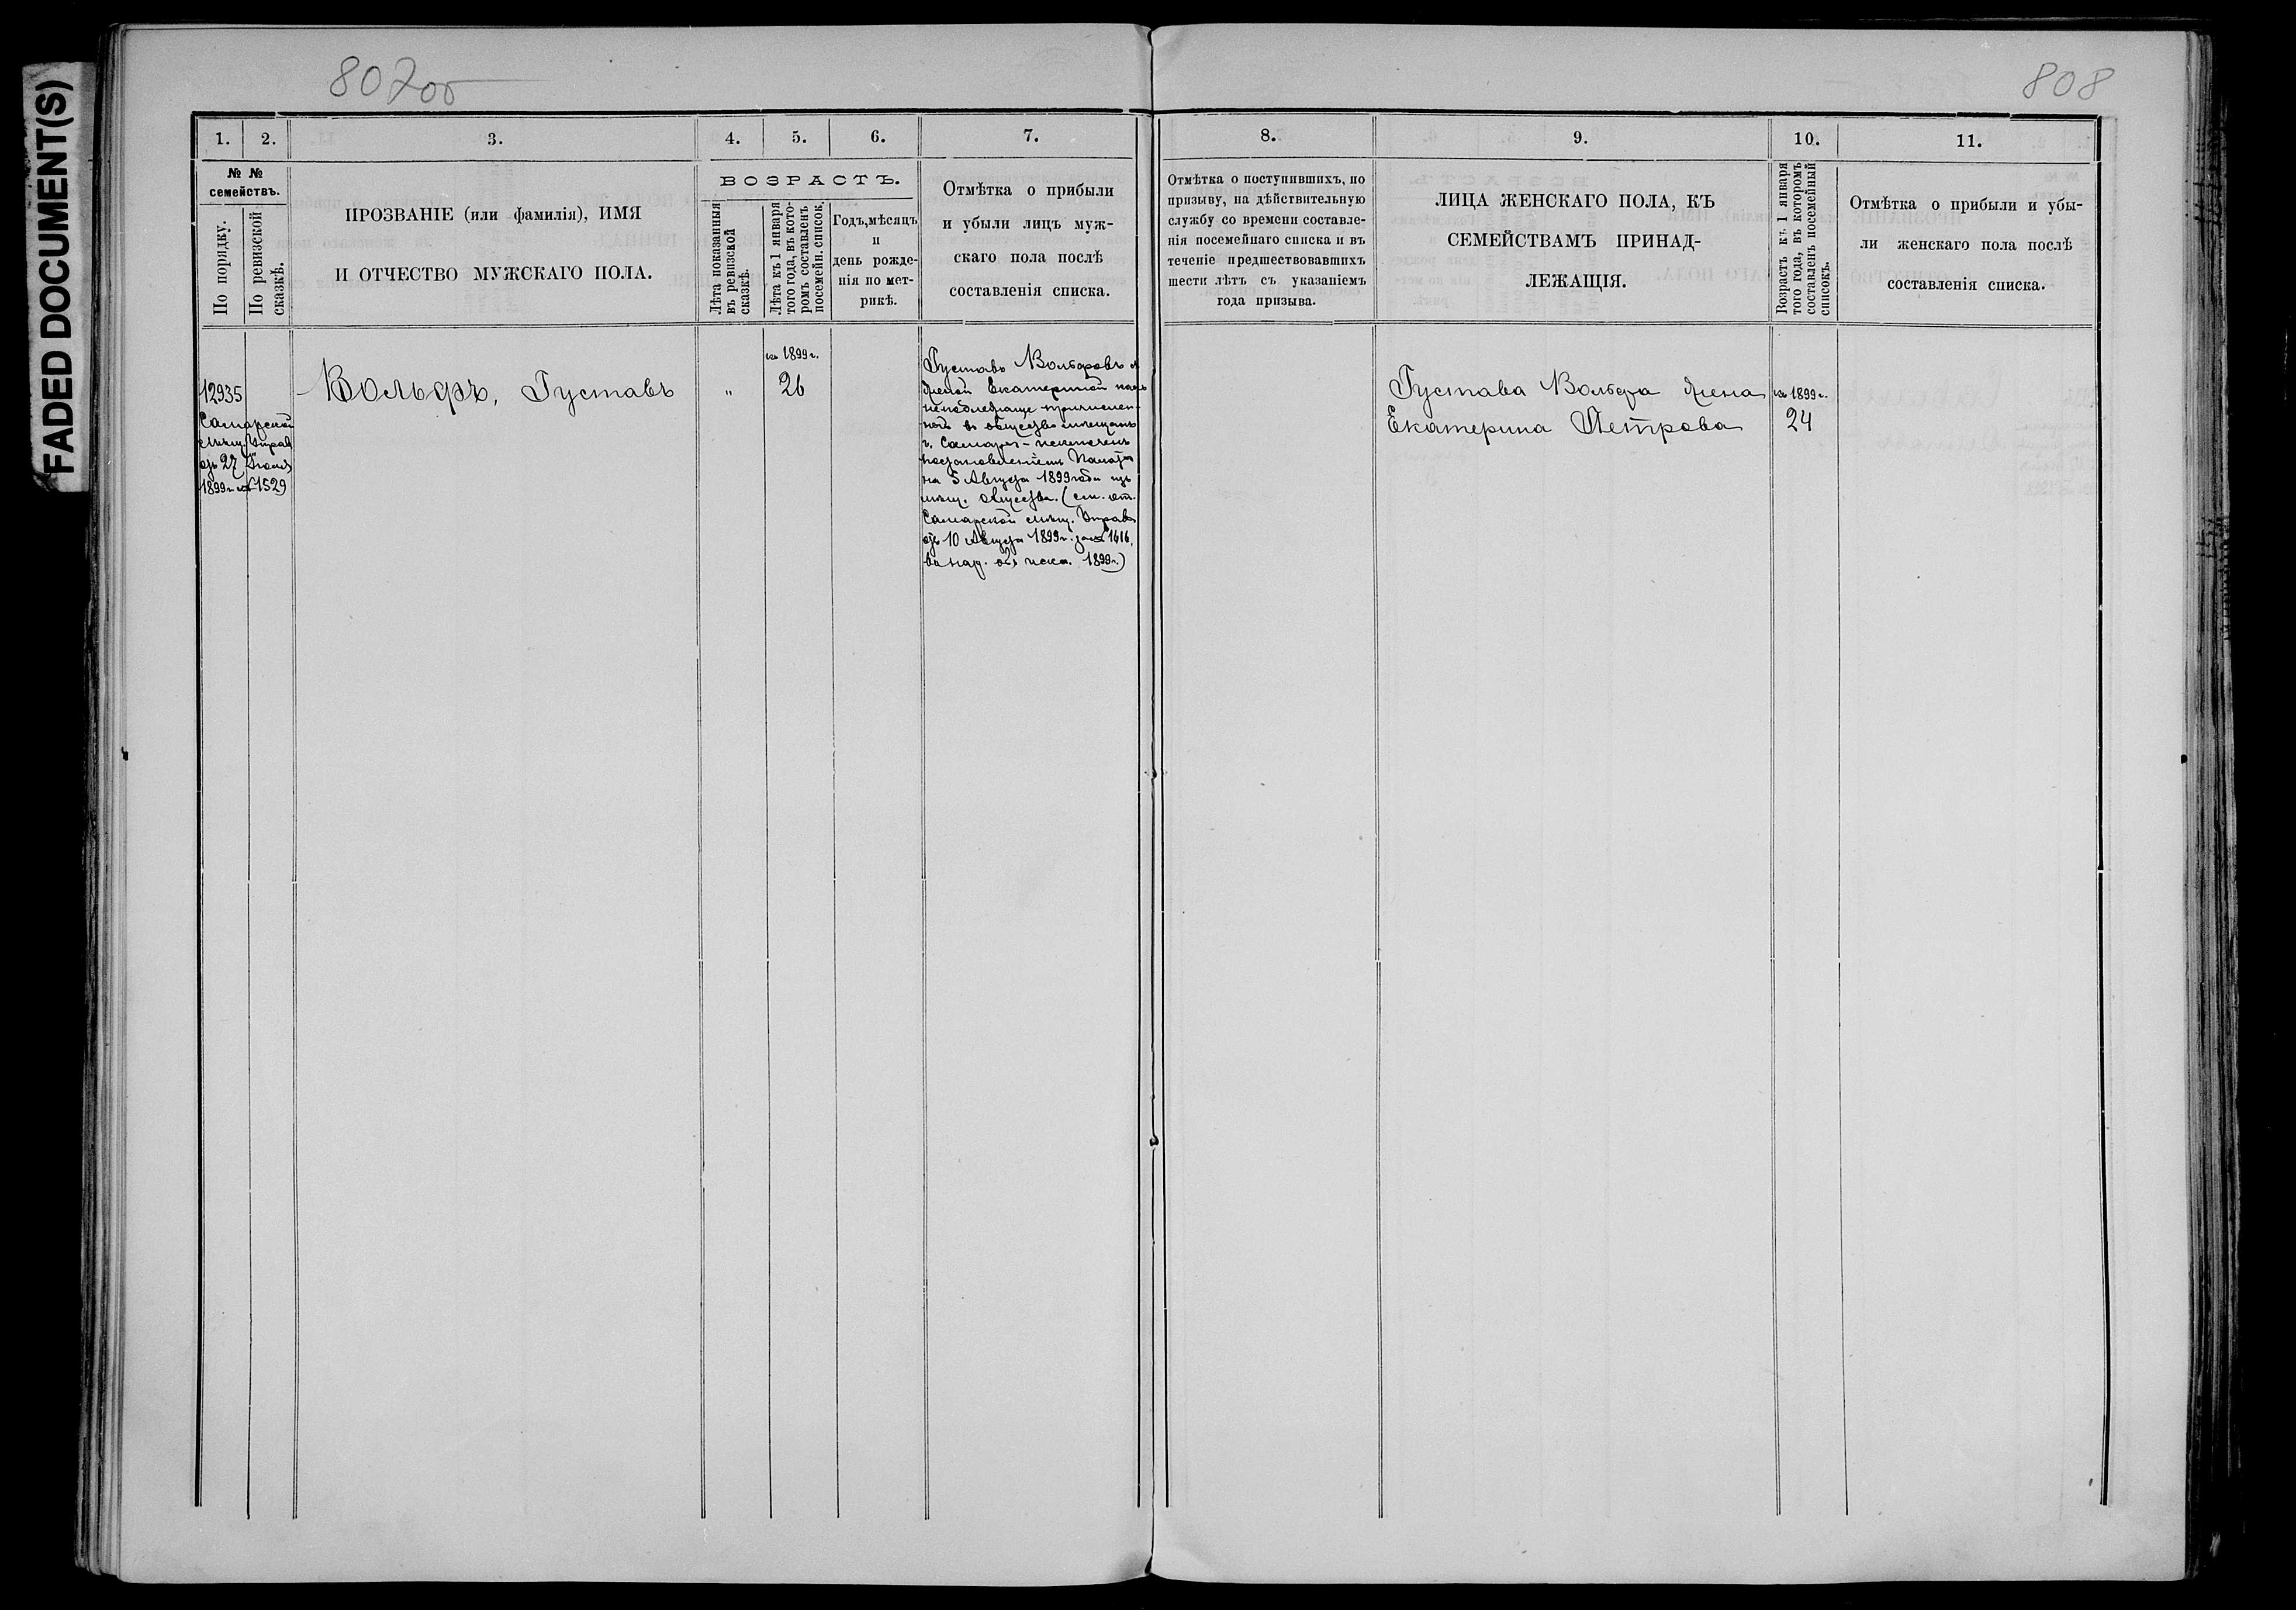 FADED DOCUMENT(S)
807об
808
1. 2. 3. 4. 5. 6. 7. 8. 9. 10. 11.
№ №
семействъ.
По порядку.
По ревизской
сказкѣ.
ПРОЗВАНІЕ (или фамилія), ИМЯ
И ОТЧЕСТВО МУЖСКАГО ПОЛА.
ВОЗРАСТЪ.
Лѣта показанныя
въ ревизской
сказкѣ.
Лѣта къ 1 января
того года, въ кото-
ромъ составленъ
посемейн. список.
Годъ, мѣсяцъ
и
день рожде-
нія по мет-
рикѣ.
Отмѣтка о прибыли
и убыли лицъ муж-
скаго пола послѣ
составленія списка.
Отмѣтка о поступившихъ, по
призыву, на дѣйствительную
службу со времени составле-
нія посемейнаго списка и въ
теченіе предшествовавшихъ
шести лѣтъ съ указаніемъ
года призыва.
ЛИЦА ЖЕНСКАГО ПОЛА, КЪ
СЕМЕЙСТВАМЪ ПРИНАД-
ЛЕЖАЩІЯ.
Возрастъ къ 1 января
того года, въ которомъ
составленъ посемейный
списокъ.
Отмѣтка о прибыли и убы-
ли женскаго пола послѣ
составленія списка.
12935
Самарской
мѣщ. Управ
отъ 27 Іюля
1899 г. № 1529
Вольфъ, Густавъ
"
къ 1899 г.
26
Густавъ Вольфовъ
женой Екатериной
неподлежаще причислен-
ной въ общество мещанъ
г. Самары - исключенъ
постановленіемъ
на 5 Августа 1899 года изъ
мѣщ. общества. (см. от.
Самарской мѣщ. Управы
отъ 10 Августа 1899 г. за № 1616,
въ нар. объ искл. 1899 г.)
Густава Вольфа жена
Екатерина Петрова
къ 1899 г.
24